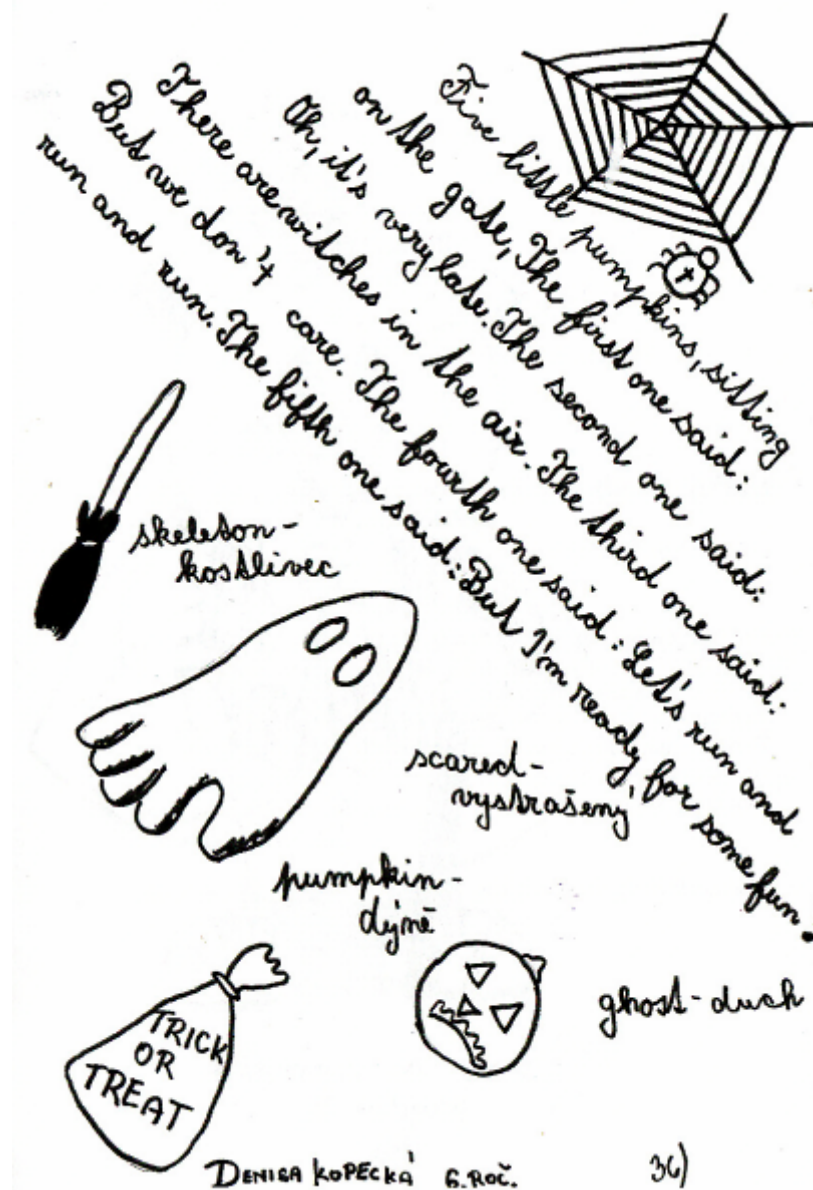 Five little pumpkins, sitting
on the gate, The first one said:
Oh, it's very late. The second one said:
There are witches in the air. The third one said:
But we don't care. The fourth one said: Let's run and
run and run. The fifth one said: But I'm ready for some fun.
skeleton-
kostlivec
scared-
vystrašený
pumpkin-
dýně
ghost-duch
TRICK
OR
TREAT
DENISA KOPECKÁ 6. ROČ.
36)